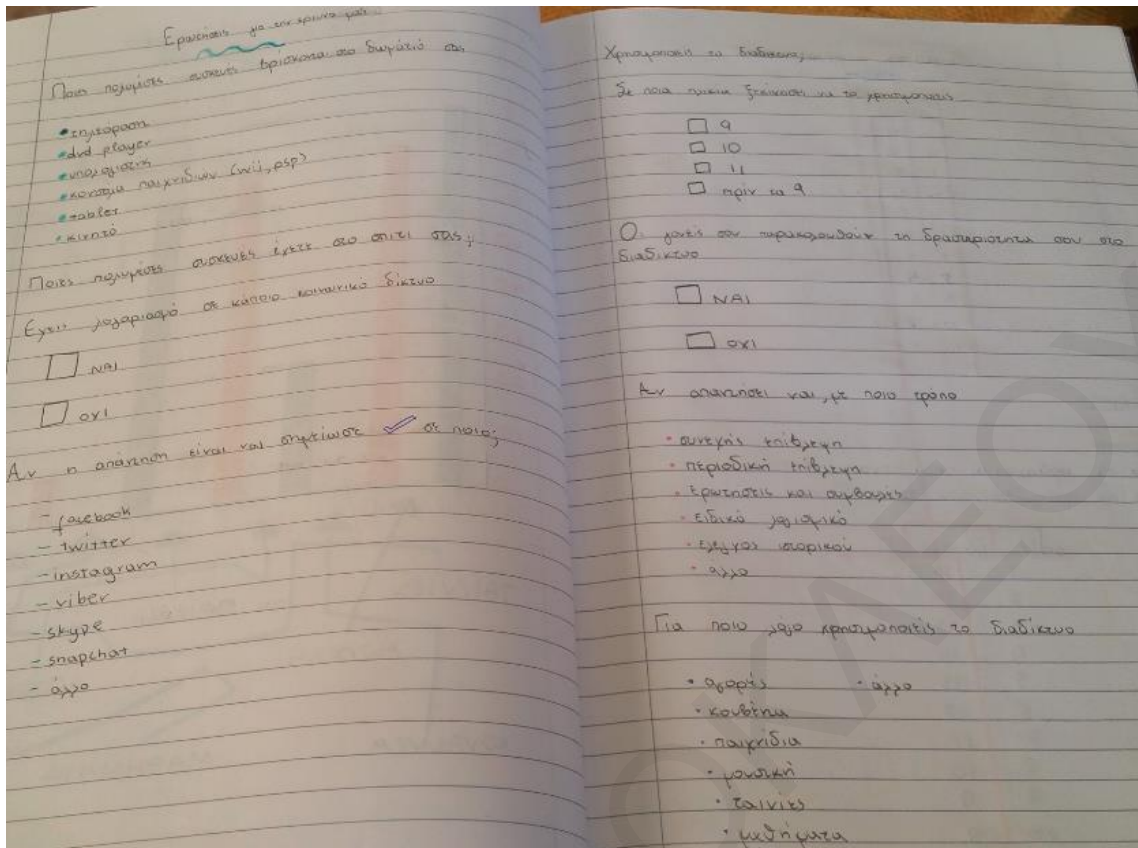 Ερωτήσεις για την έρευνα μας
Ποιες πολυμέσες συσκευές βρίσκονται στο δωμάτιό σας
• τηλεόραση
• dvd player
• υπολογιστής
• κονσόλα παιχνιδιών (wii, psp)
• tablet
• κινητό
Ποιες πολυμέσες συσκευές έχετε στο σπίτι σας;
Έχεις λογαριασμό σε κάποιο κοινωνικό δίκτυο
ΝΑΙ
ΟΧΙ
Αν η απάντηση είναι ναι σημείωσε ✓ σε ποιο;
- facebook
- twitter
- instagram
- viber
- skype
- snapchat
- άλλο
Χρησιμοποιείς το διαδίκτυο;
Σε ποια ηλικία ξεκίνησες να το χρησιμοποιείς
9
10
11
πρίν τα 9
Οι γονείς σου παρακολουθούν τη δραστηριότητα σου στο
διαδίκτυο
ΝΑΙ
ΟΧΙ
Αν απαντήσει ναι, με ποιο τρόπο
• συνεχής επίβλεψη
• περιοδική επίβλεψη
• Ερωτήσεις και συμβουλές
• ειδικό λογισμικό
• έλεγχος ιστορικού
• άλλο
Για ποιο λόγο χρησιμοποιείς το διαδίκτυο
• αγορές • άλλο
• κουβέντα
• παιχνίδια
• μουσική
• ταινίες
• μαθήματα